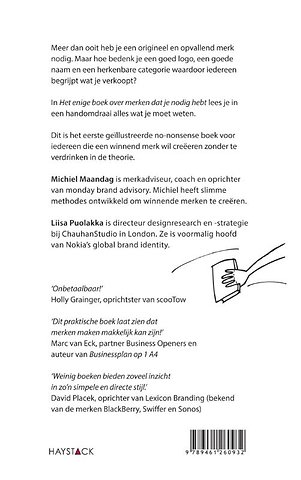 Meer dan ooit heb je een origineel en opvallend merk
nodig. Maar hoe bedenk je een goed logo, een goede
naam en een herkenbare categorie waardoor iedereen
begrijpt wat je verkoopt?
In Het enige boek over merken dat je nodig hebt lees je in
een handomdraai alles wat je moet weten.
Dit is het eerste geïllustreerde no-nonsense boek voor
iedereen die een winnend merk wil creëren zonder te
verdrinken in de theorie.
Michiel Maandag is merkadviseur, coach en oprichter
van monday brand advisory. Michiel heeft slimme
methodes ontwikkeld om winnende merken te creëren.
Liisa Puolakka is directeur designresearch en -strategie
bij ChauhanStudio in London. Ze is voormalig hoofd
van Nokia's global brand identity.
'Onbetaalbaar!'
Holly Grainger, oprichtster van scooTow
'Dit praktische boek laat zien dat
merken maken makkelijk kan zijn!'
Marc van Eck, partner Business Openers en
auteur van Businessplan op 1 A4
'Weinig boeken bieden zoveel inzicht
in zo'n simpele en directe stijl.'
David Placek, oprichter van Lexicon Branding (bekend
van de merken BlackBerry, Swiffer en Sonos)
HAYSTACK
9 789461 260932